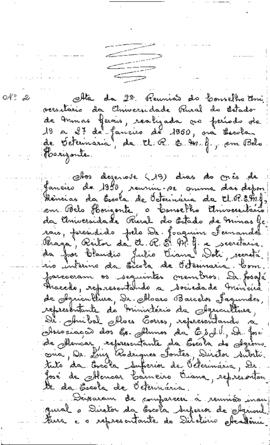 Nº 2
Ata da 2ª Reunião do Conselho Uni-
versitário da Universidade Rural do Estado
de Minas Gerais, realizada no período de
19 a 27 de janeiro de 1950, na Escola
de Veterinária, da U.R.E.M.G., em Belo
Horizonte.
Aos dezenove (19) dias do mês de
janeiro de 1950, reuniu-se numa das depen-
dências da Escola de Veterinária da U.R.E.M.G.,
em Belo Horizonte, o Conselho Universitário
da Universidade Rural do Estado de Minas Ge-
rais, presidido pelo Dr. Joaquim Fernandes
Braga, Reitor da U.R.E.M.G. e secretaria-
do por Claudio Julio Viana, secre-
tário interino da Escola de Veterinária. Com-
pareceram os seguintes membros: Dr. José
Macedo, representando a Sociedade Mineira
de Agricultura, Dr. Alvaro Barcelos Fagundes,
representante do Ministério da Agricultura,
Dr. Anibal Alves, representando a
Associação dos Ex-Alunos da E.S.A.V., Dr. José
de Alencar, representante da Escola de Agrono-
mia, Dr. Luiz Rodrigues Fontes, Diretor substi-
tuto da Escola Superior de Veterinária, Dr.
José de Alencar Carneiro Viana, represen-
te da Escola de Veterinária.
Deixaram de comparecer à reunião inau-
gural o Diretor da Escola Superior de Agricul-
tura e o representante do Diretório Acadêmi-